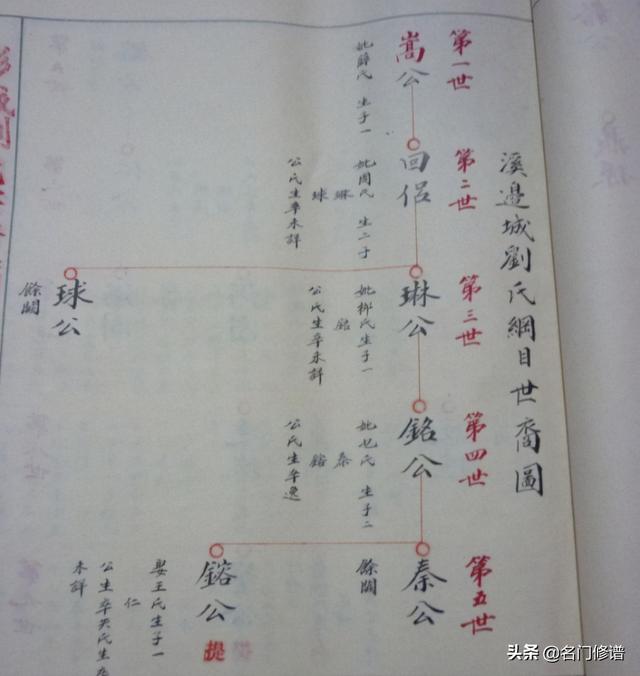 溪邊城劉氏綱目世裔圖
第一世
嵩公
妣薛氏 生子一
第二世
回侶
妣周氏 生二子
琳
球
公氏生卒未詳
第三世
琳公
妣柳氏生子一
銘
公氏生卒未詳
球公
餘闕
第四世
銘公
妣也氏 生子二
秦
鎔
公氏生卒逸
第五世
秦公
餘闕
鎔公
提
娶王氏生子一
仁
公生卒失氏生卒
未詳
头条 @名门修谱